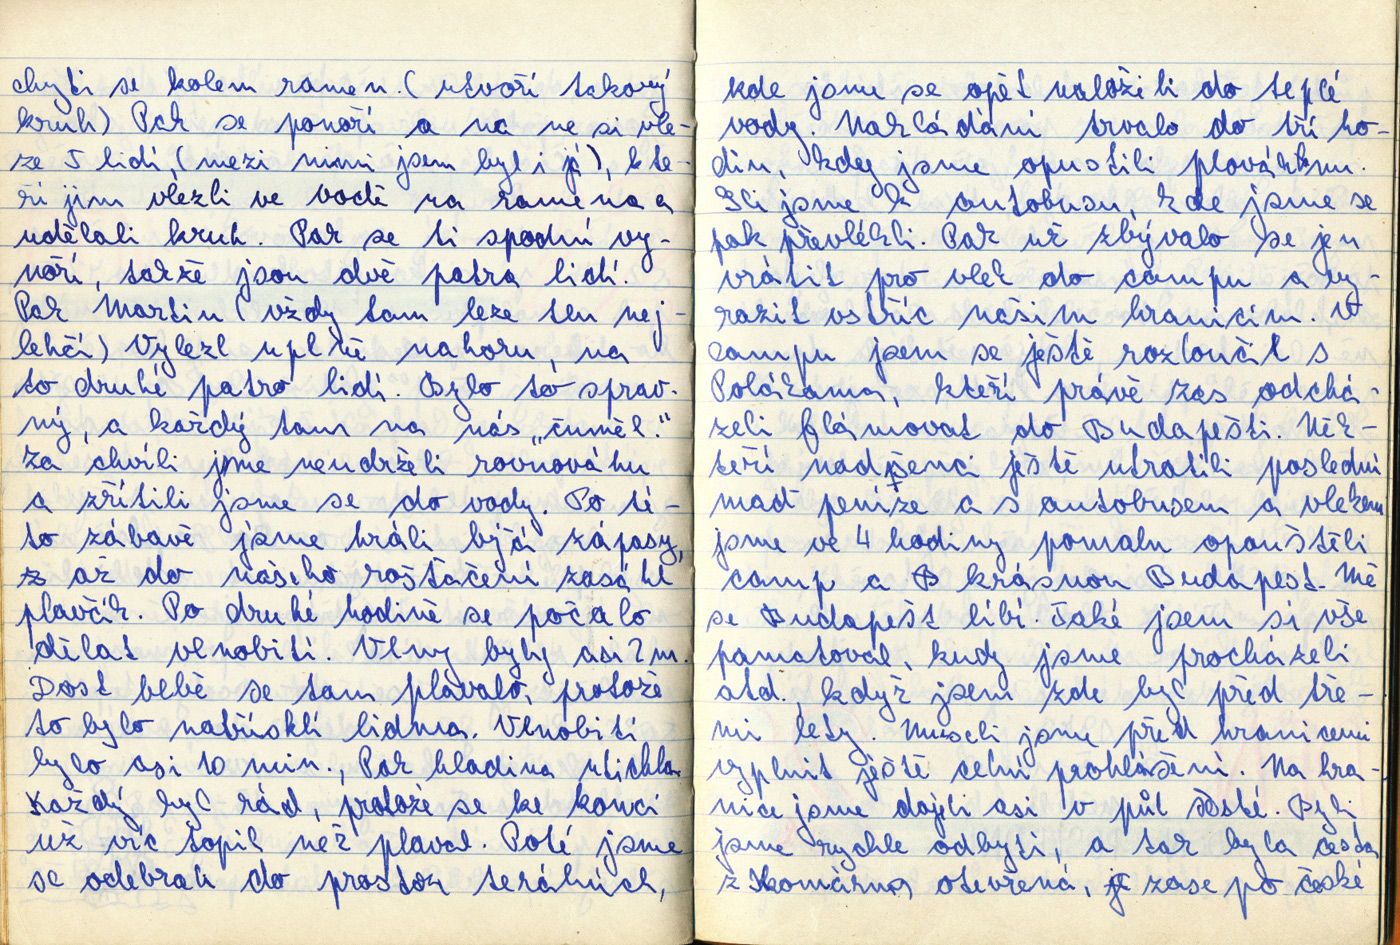 chytí se kolem ramen. (utvoří takový
kruh) Pak se ponoří a na ne si vle-
ze 5 lidí, (mezi nimi jsem byl i já), kte-
ří jim vlezli ve vodě na ramena a
udělali kruh. Pak se ti spodní vy-
noří, takže jsou dvě patra lidí.
Pak Martin (vždy tam leze ten nej-
lehčí) Vylezl uplně nahoru na
to druhé patro lidí. Bylo to sprav-
ný, a každý tam na nás „čuměl."
Za chvíli jsme neudrželi rovnováhu
a zřítili jsme se do vody. Po té-
to zábavě jsme hráli býčí zápasy,
až do našeho roztačení zasáhl
plavčík. Po druhé hodině se počalo
dělat vlnobití. Vlny byly asi 2 m.
Dost blbě se tam plavalo, protože
to bylo natřísklí lidma. Vlnobití
bylo asi 10 min., Pak hladina utichla.
Každý byl rád, protože se ke konci
už víc topil než plaval. Poté jsme
se odebrali do prostor terálních,
kde jsme se opět naložili do teplé
vody Nakládání trvalo do tří ho-
din, kdy jsme opustili plovárnu.
Šli jsme k autobusu, kde jsme se
pak převlékli. Pak už zbývalo se jen
vrátit pro vlek do campu a vy-
razit vstříc našim hranicím. V
campu jsem se ještě rozloučil s
Polákama, kteří právě zas odchá-
zeli flámovat do Budapešti. Něk-
teří nadšenci ještě utratili poslední
maď peníze a s autobusem a vlekem
jsme ve 4 hodiny pomalu opouštěli
camp a krásnou Budapest. Mě
se Budapešt líbí. Také jsem si vše
pamatoval, kudy jsme procházeli
atd. když jsem zde byl před tře-
mi lety. Museli jsme před hranicemi
vyplnit ještě celní prohlášení. Na hra-
nice jsme dojeli asi v půl šesté. Byli
jsme rychle odbyti, a tak byla cesta
z Komárna otevřená, zase po české